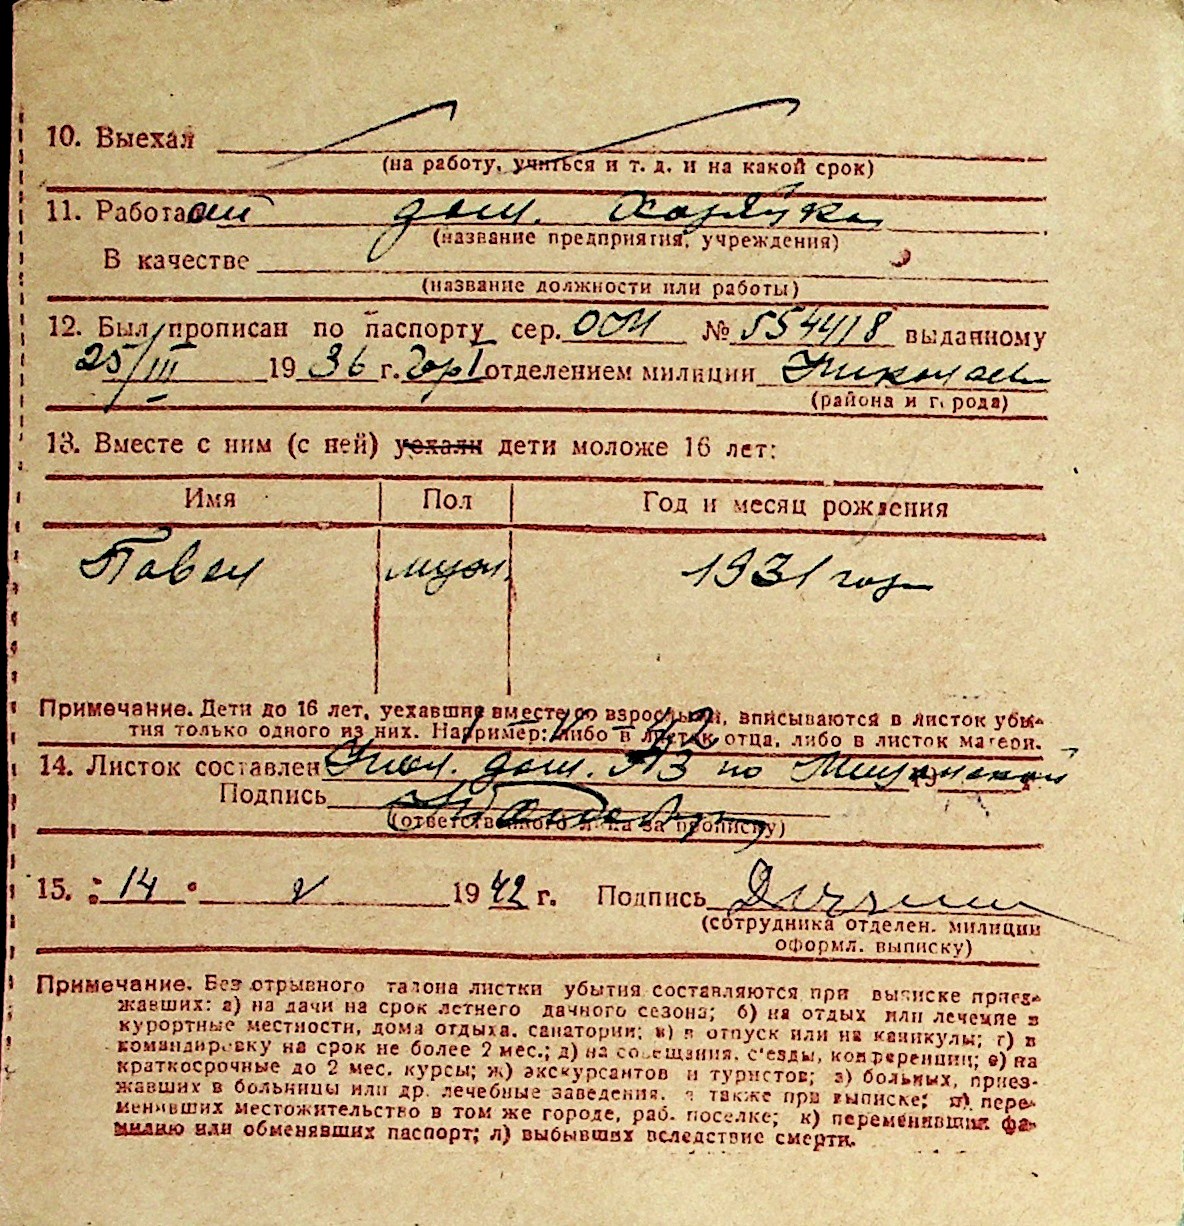 10. Выехал
(на работу, учиться и т. д. и на какой срок)
11. Работа дом. хозяйка
(название предприятия, учреждения)
В качестве
(название должности или работы)
12. Был прописан по паспорту сер. № 554418 выданному
25/III 1936 г. Гор I отделением милиции Николаев
(района и города)
13. Вместе с ним (с ней) уехали дети моложе 16 лет:
Имя Пол Год и месяц рождения
Павел муж. 1931 год
Примечание. Дети до 16 лет, уехавшие вместе со взрослыми, вписываются в листок убы-
тия только одного из них. Например: либо в листок отца, либо в листок матери.
42
14. Листок составлен дом. по 19 г.
Подпись
(ответственного лица за прописку)
15. 14 V 1942 г. Подпись
(сотрудника отделен. милиции
оформл. выписку)
Примечание. Без отрывного талона листки убытия составляются при выписке приез-
жавших: а) на дачи на срок летнего дачного сезона; б) на отдых или лечение в
курортные местности, дома отдыха, санатории; в) в отпуск или на каникулы; г) в
командировку на срок не более 2 мес.; д) на совещания, с'езды, конференции; е) на
краткосрочные до 2 мес. курсы; ж) экскурсантов и туристов; з) больных, приез-
жавших в больницы или др. лечебные заведения, а также при выписке; и) пере-
менивших местожительство в том же городе, раб. поселке; к) переменивших фа-
милию или обменявших паспорт; л) выбывших вследствие смерти.